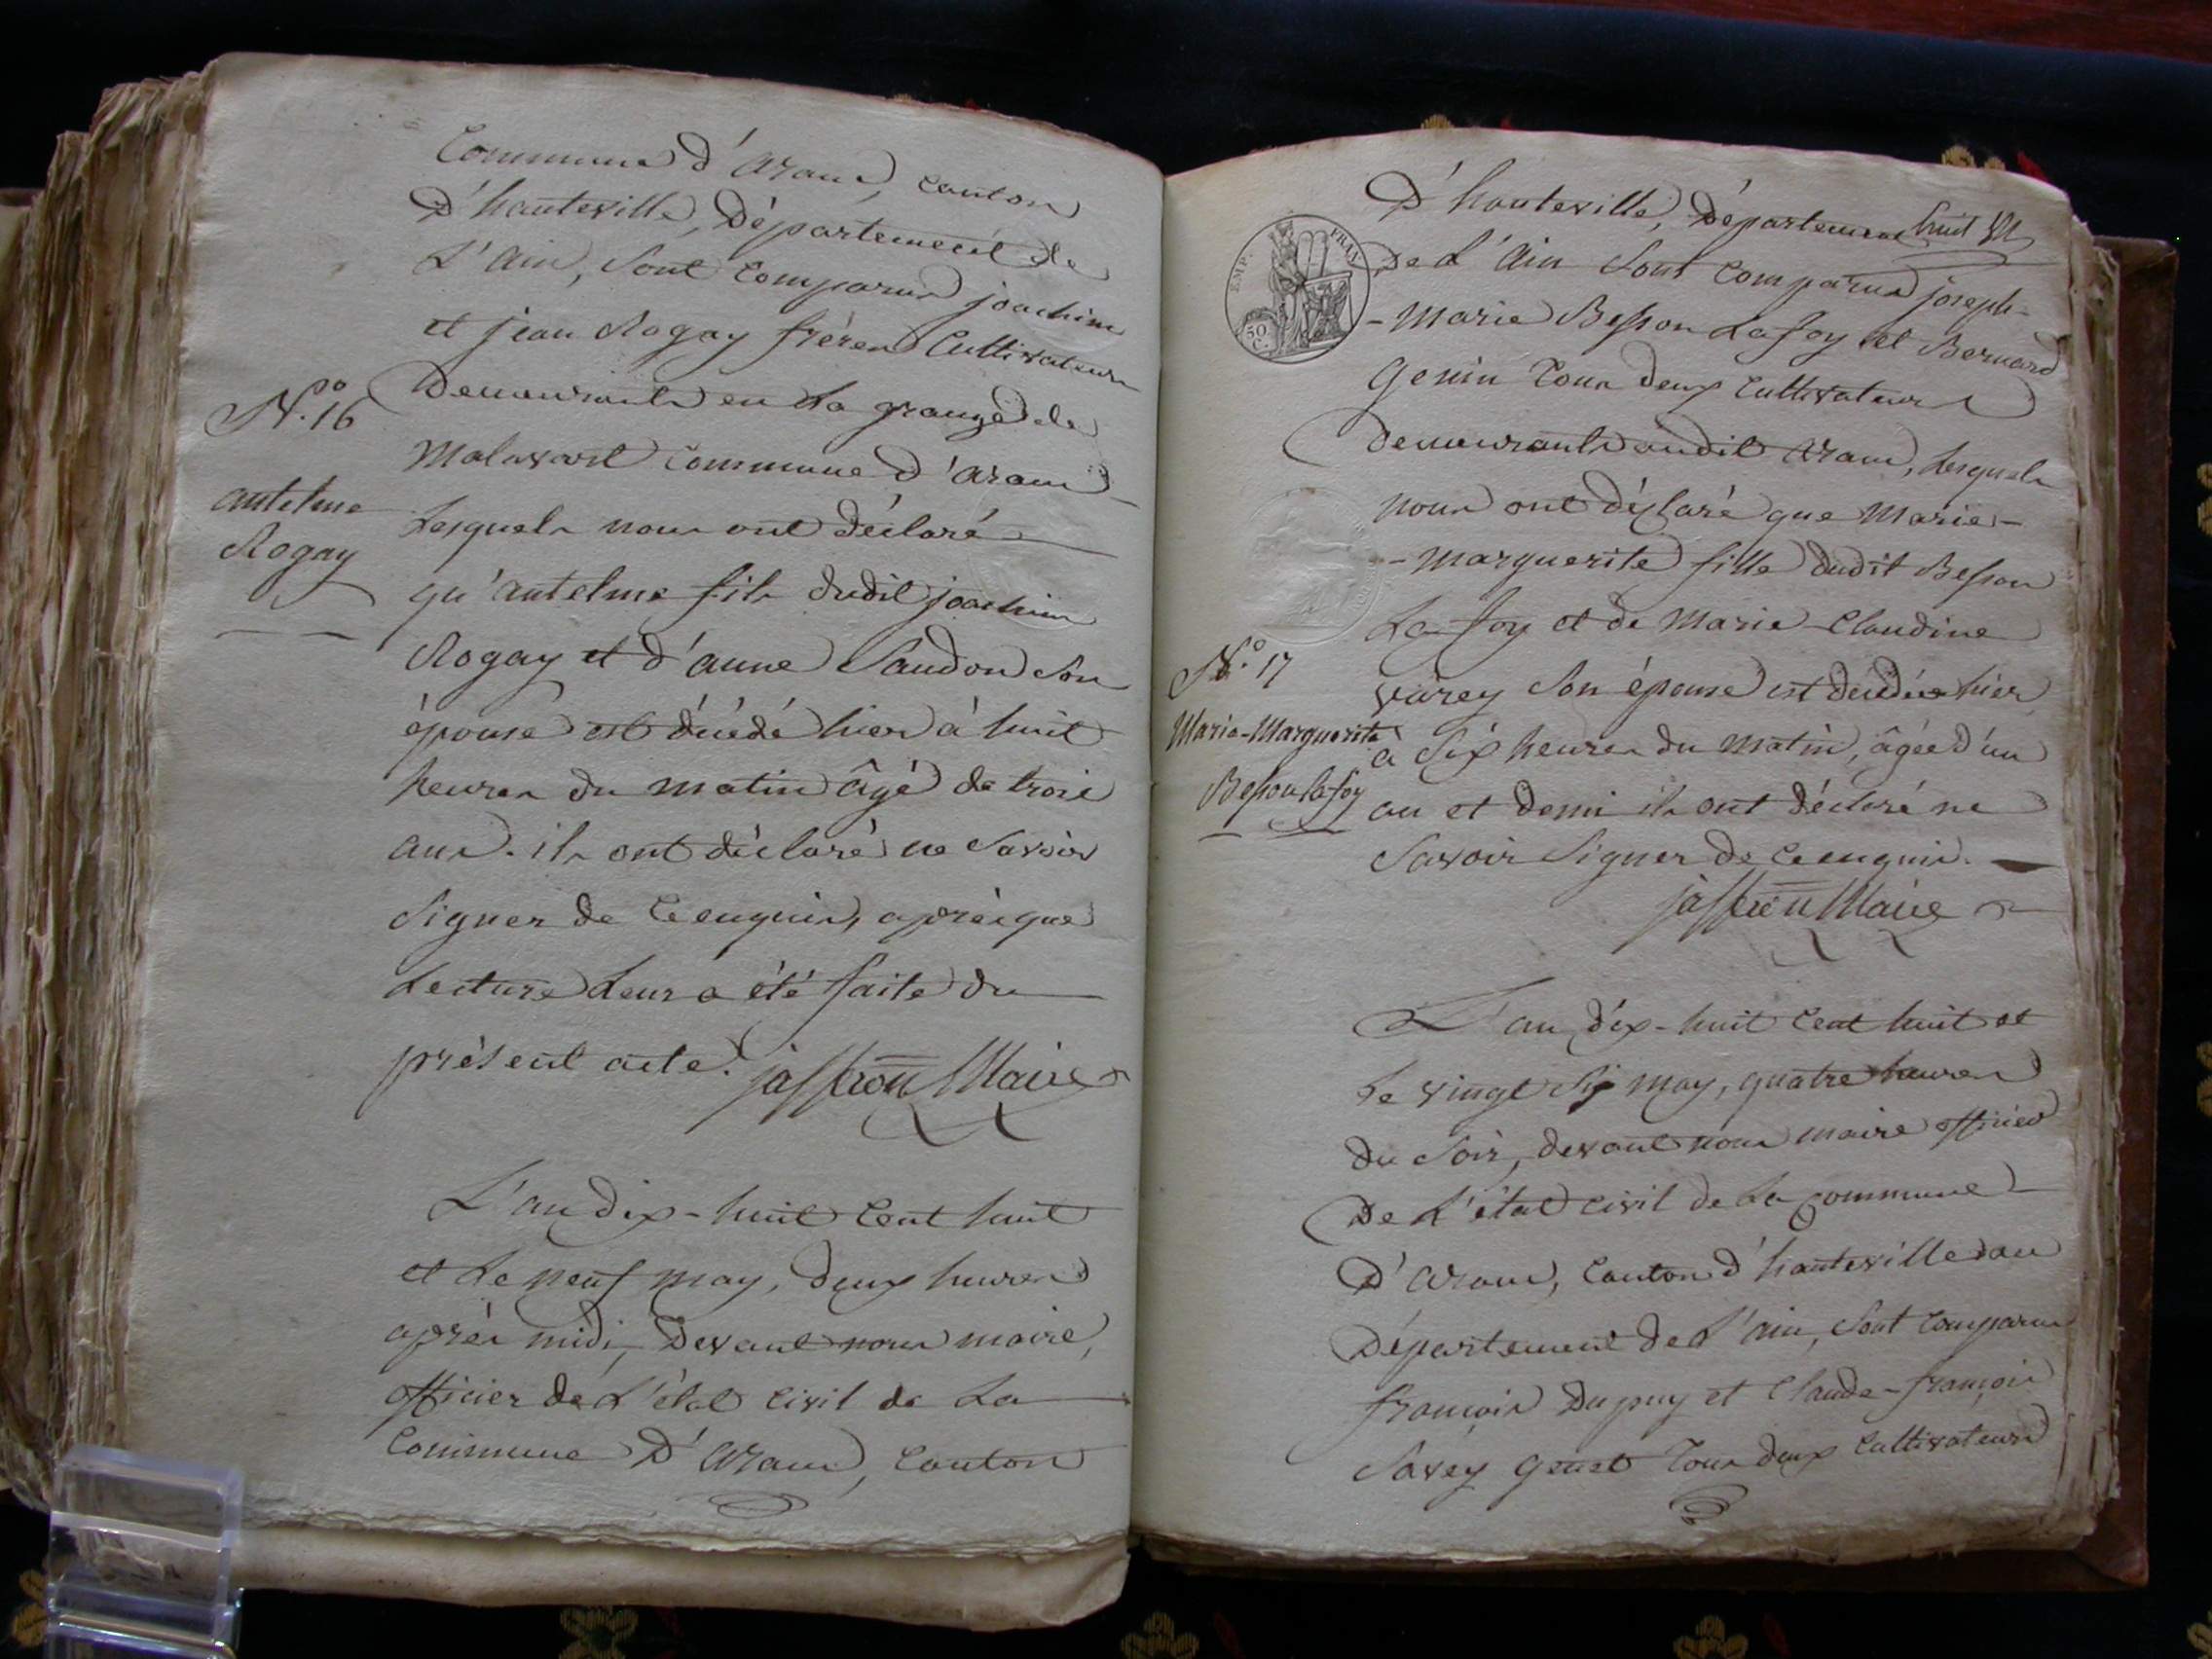 Commune d'aranc, canton
D'hauteville, Département de
L'ain, sont comparus joachim
et jean Rogay frères Cultivateurs
N.o 16
Demeurants en la grange de
Malavard commune d'aranc
antelme
Rogay
Lesquels nous ont déclaré
qu'antelme fils dudit joachim
Rogay et d'anne Saudon son
épouse est décédé hier à huit
heures du matin âgé de trois
ans. ils ont déclaré ne savoir
signer de ce enquis, après que
Lecture Leur a été faite du
présent acte.
jaffron Maire
L'an dix-huit cent huit
et Le neuf may, deux heures
après midi, Devant nous maire,
officier de L'état civil de La
commune D'aranc, canton
huit
D'hauteville, Département
EMP. FRAN
50 C.
De L'ain sont comparus joseph-
-marie Besson Lafoy et Bernard
Genin tous deux cultivateurs
demeurants audit aranc, Lesquels
nous ont déclaré que Marie-
-marguerite fille dudit Besson
La foy et de Marie Claudine
N.o 17
Marie-Marguerite
Besson Lafoy
varey son épouse est décédée hier
a six heures du matin, âgée d'un
an et demi ils ont déclaré ne
savoir signer de ce enquis.
jaffron Maire
L'an dix-huit cent huit et
Le vingt six may, quatre heures
du soir, devant nous maire officier
De L'état civil de La commune
D'aranc, canton d'hauteville au
Département de L'ain, sont comparus
françois Dupuy et Claude-françois
Savey Genet tous deux cultivateurs